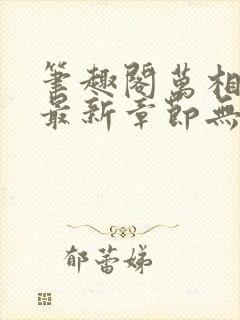 筆趣閣萬相
最新章節無
郁蕾娣